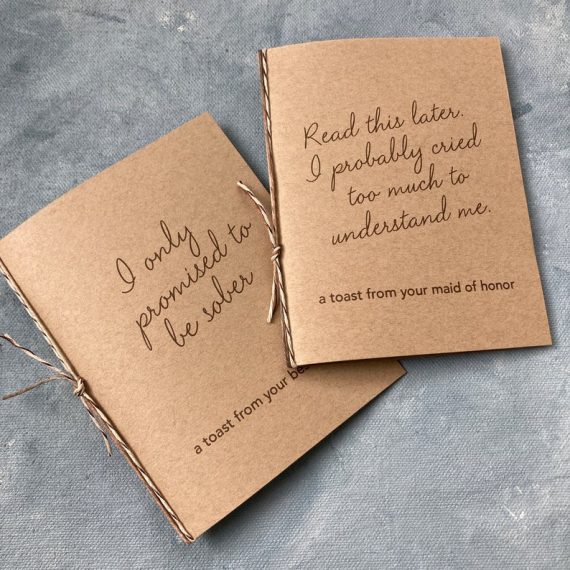 I only
promised to
be sober
a toast from your
Read this later.
I probably cried
too much to
understand me.
a toast from your maid of honor